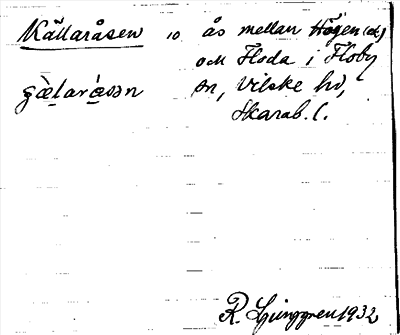 Källaråsen 10 ås mellan Högen (ek)
och Floda i Floby
sn, Vilske hd,
Skarab. l.
R. Ljunggren 1932